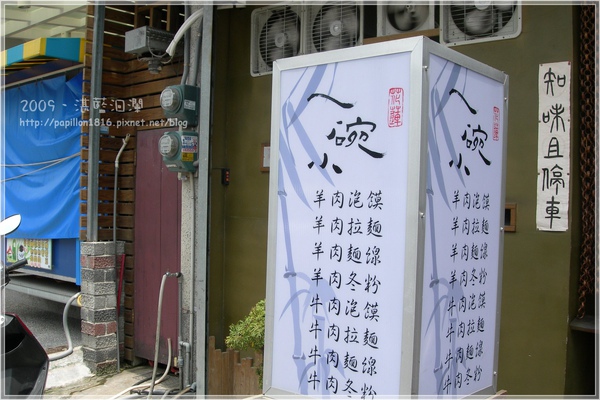 2009、湛藍洄瀾
http://papillon1816.pixnet.net/blog
一碗小
花蓮
羊肉泡饃
羊肉拉麵
羊肉麵線
羊肉冬粉
牛肉泡饃
牛肉拉麵
牛肉麵線
牛肉冬粉
一碗小
花蓮
羊肉泡饃
羊肉拉麵
羊肉麵線
羊肉冬粉
牛肉泡饃
牛肉拉麵
牛肉麵線
牛肉冬粉
知味且停車